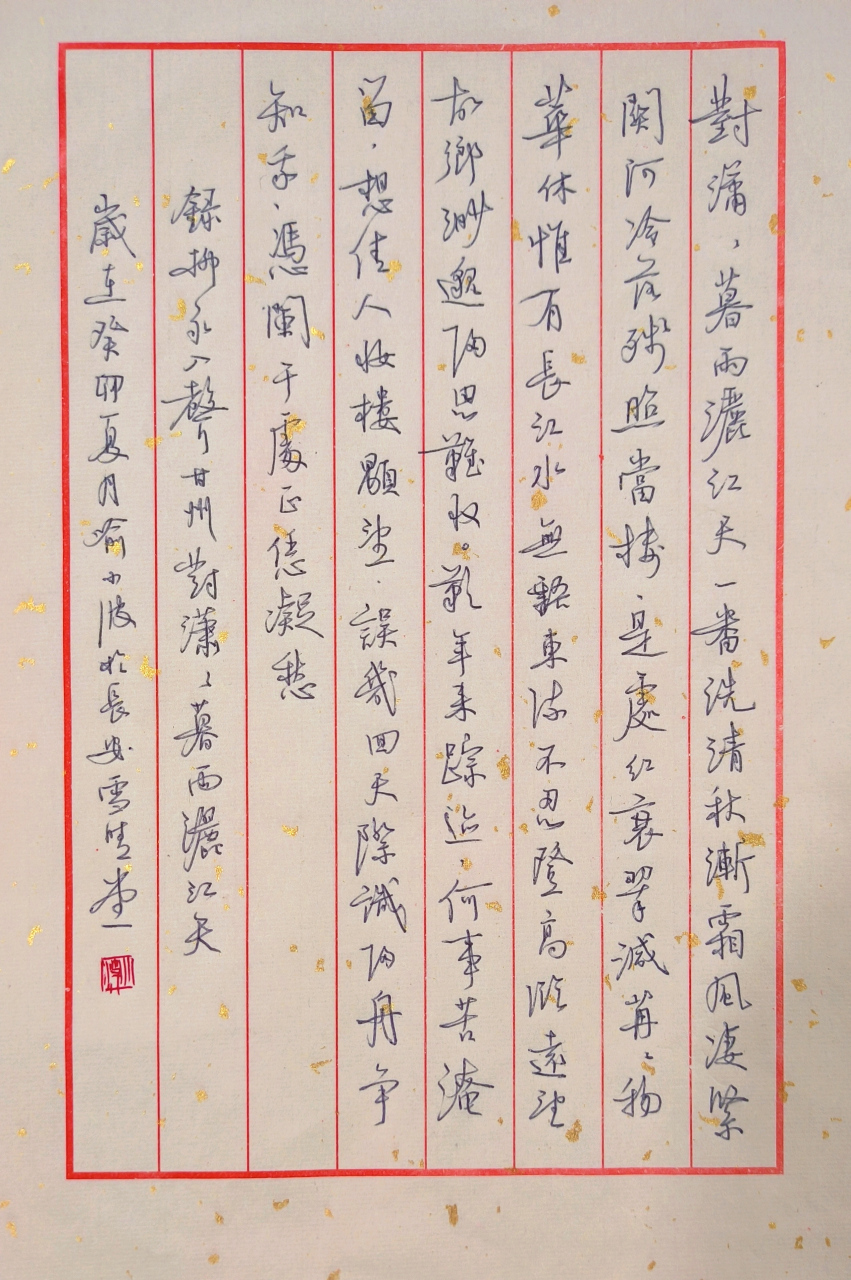 對瀟、暮雨灑江天一番洗清秋漸霜風凄緊
關河冷落殘照當樓、是處紅衰翠減苒、物
華休惟有長江水無語東流不忍登高臨遠望
故鄉渺邈歸思難收。歎年來踪迹、何事苦淹
留、想佳人妝樓顒望、誤幾回天際識歸舟爭
知我、憑闌干處正恁凝愁
錄柳永八聲甘州對瀟、暮雨灑江天
歲在癸卯夏月喻小波於長安雪生堂